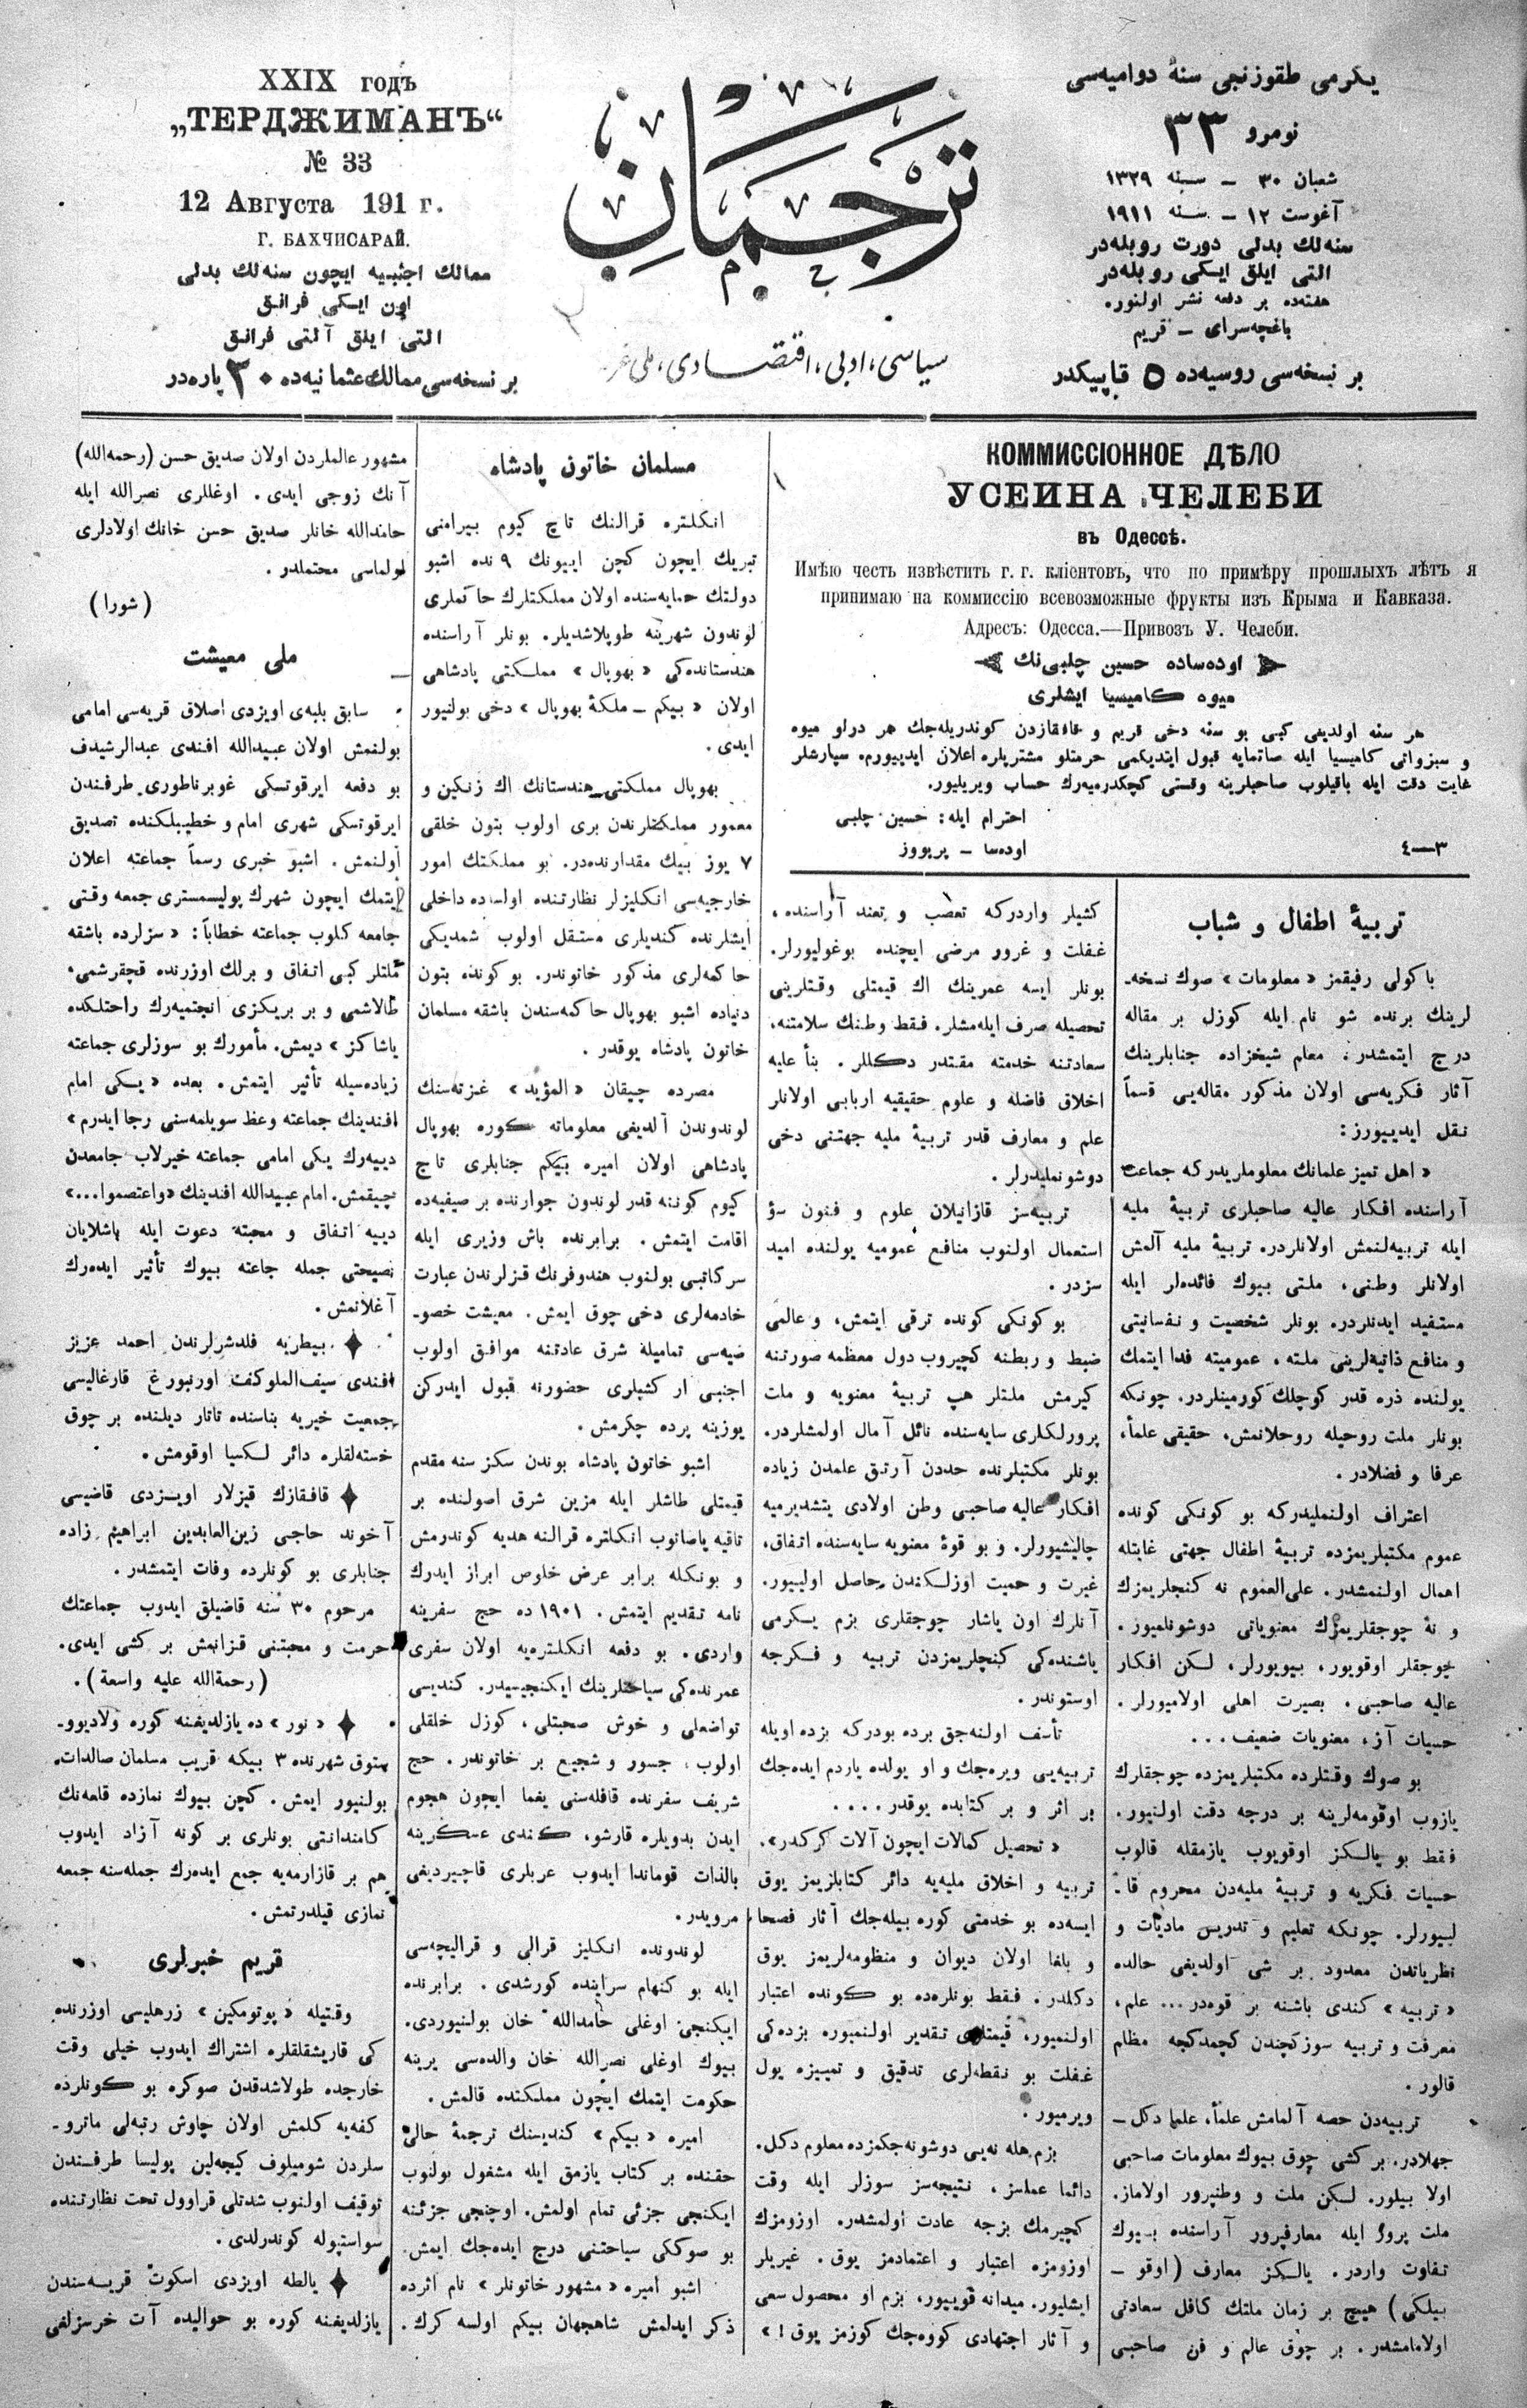 XXIX годъ
„ТЕРДЖИМАНЪ“
№ 33
12 Августа 191 г.
Г. БАХЧИСАРАЙ.
ممالك اجنبیه ایچون سنه‌لك بدلی
اون ایکی فرانق
التی ایلق آلتی فرانق
بر نسخه‌سی ممالك عثمانیه‌ده ۳۰ پاره‌در
ترجمان
سیاسی، ادبی، اقتصادی، ملی
یکرمی طقوزنجی سنهٔ دوامیه‌سی
نومرو ۳۳
شعبان ۳۰ – سنه ۱۳۲۹
آغوست ۱۲ – سنه ۱۹۱۱
سنه‌لك بدلی دورت روبله‌در
التی ایلق ایکی روبله‌در
هفته‌ده بر دفعه نشر اولنور.
باغچه‌سرای – قریم
بر نسخه‌سی روسیه‌ده ۵ قاپیکدر
КОММИССІОННОЕ ДѢЛО
УСЕИНА ЧЕЛЕБИ
въ Одессѣ.
Имѣю честь извѣстить г. г. кліентовъ, что по примѣру прошлыхъ лѣтъ я
принимаю на коммиссію всевозможные фрукты изъ Крыма и Кавказа.
Адресъ: Одесса.—Привозъ У. Челеби.
اوده‌ساده حسین چلبی‌نك
میوه کامیسیا ایشلری
هر سنه اولدیغی کبی بو سنه دخی قریم و قافقازدن کوندریله‌جك هر درلو میوه
و سبزواتی کامیسیا ایله صاتمایه قبول ایتدیکمی حرمتلو مشتریلره اعلان ایدییورم. سپارشلر
غایت دقت ایله باقیلوب صاحبلرینه وقتی کچکدرمیه‌رك حساب ویریلیور.
احترام ایله: حسین چلبی
اوده‌سا – پریووز
۳—٤
تربیهٔ اطفال و شباب
باکولی رفیقمز «معلومات» صوك نسخه‌-
لرینك برنده شو نام ایله کوزل بر مقاله
درج ایتمشدر. معلم شیخزاده جنابلرینك
آثار فکریه‌سی اولان مذکور مقاله‌یی قسماً
نقل ایدییورز:
«اهل تمیز علمانك معلوملریدرکه جماعت
آراسنده افکار عالیه صاحبلری تربیهٔ ملیه
ایله تربیه‌لنمش اولانلردر. تربیهٔ ملیه آلمش
اولانلر وطنی، ملتی بیوك فائده‌لر ایله
مستفید ایدنلردر. بونلر شخصیت و نفسانیتی
و منافع ذاتیه‌لرینی ملته، عمومیته فدا ایتمك
یولنده ذره قدر کوچلك کورمینلردر. چونکه
بونلر ملت روحیله روحلانمش، حقیقی علماء،
عرفا و فضلادر.
اعتراف اولنملیدرکه بو کونکی کونده
عموم مکتبلریمزده تربیهٔ اطفال جهتی غایتله
اهمال اولنمشدر. علی‌العموم نه کنجلریمزك
و نه چوجقلریمزك معنویاتی دوشونلمیور.
چوجقلر اوقویور، بیویورلر، لکن افکار
عالیه صاحبی، بصیرت اهلی اولامیورلر.
حسیات آز، معنویات ضعیف...
بو صوك وقتلرده مکتبلریمزده چوجقلرك
یازوب اوقومه‌لرینه بر درجه دقت اولنیور.
فقط بو یالکز اوقویوب یازمقله قالوب
حسیات فکریه و تربیهٔ ملیه‌دن محروم قا-
لییورلر. چونکه تعلیم و تدریس مادیات و
نظریاتدن معدود بر شی اولدیغی حالده
«تربیه» کندی باشنه بر قوه‌در... علم،
معرفت و تربیه سوزکچندن کچمدکجه مظلم
قالور.
تربیه‌دن حصه آلمامش علماء، علما دکل –
جهلادر. بر کشی چوق بیوك معلومات صاحبی
اولا بیلور. لکن ملت و وطنپرور اولاماز.
ملت پرور ایله معارفپرور آراسنده بیوك
تفاوت واردر. یالکز معارف (اوقو –
بیلکی) هیچ بر زمان ملتك کافل سعادتی
اولامامشدر. بر چوق عالم و فن صاحبی
کشیلر واردرکه تعصب و تعند آراسنده،
غفلت و غرور مرضی ایچنده بوغولیورلر.
بونلر ایسه عمرینك اك قیمتلی وقتلرینی
تحصیله صرف ایله‌مشلر. فقط وطنك سلامتنه،
سعادتنه خدمته مقتدر دکللر. بنأ علیه
اخلاق فاضله و علوم حقیقیه اربابی اولانلر
علم و معارف قدر تربیهٔ ملیه جهتنی دخی
دوشونملیدرلر.
تربیه‌سز قازانیلان علوم و فنون سؤ
استعمال اولنوب منافع عمومیه یولنده امید
سزدر.
بو کونکی کونده ترقی ایتمش، و عالمی
ضبط و ربطنه کچیروب دول معظمه صورتنه
کیرمش ملتلر هپ تربیهٔ معنویه و ملت
پرورلکلری سایه‌سنده نائل آمال اولمشلردر.
بونلر مکتبلرنده حددن آرتق علمدن زیاده
افکار عالیه صاحبی وطن اولادی یتشدیرمیه
چالیشیورلر. و بو قوهٔ معنویه سایه‌سنده اتفاق،
غیرت و حمیت اوزلکندن حاصل اولییور.
آنلرك اون یاشار چوجقلری بزم یکرمی
یاشنده‌کی کنجلریمزدن تربیه و فکرجه
اوستوندر.
تأسف اولنه‌جق برده بودرکه بزده اویله
تربیه‌یی ویره‌جك و او یولده یاردم ایده‌جك
بر اثر و بر کتابده یوقدر....
«تحصیل کمالات ایچون آلات کرکدر».
تربیه و اخلاق ملیه‌یه دائر کتابلریمز یوق
ایسه‌ده بو خدمتی کوره بیله‌جك آثار فصحا
و بلغا اولان دیوان و منظومه‌لریمز یوق
دکلدر. فقط بونلره‌ده بو کونده اعتبار
اولنمیور، قیمتلری تقدیر اولنمیوره بزده‌کی
غفلت بو نقطه‌لری تدقیق و تمییزه یول
ویرمیور.
بزم هله نه‌یی دوشونه‌جکمزده معلوم دکل.
دائما عملسز، نتیجه‌سز سوزلر ایله وقت
کچیرمك بزجه عادت اولمشدر. اوزومزك
اوزومزه اعتبار و اعتمادمز یوق. غیریلر
ایشلیور. میدانه قویییور، بزم او محصول سعی
و آثار اجتهادی کووه‌جك کوزمز یوق!»
مسلمان خاتون پادشاه
انکلتره قرالنك تاج کیوم بیرامنی
تبریك ایچون کچن ایيونك ۹ نده اشبو
دولتك حمایه‌سنده اولان مملکتلرك حاکملری
لوندون شهرینه طوپلاشدیلر. بونلر آراسنده
هندستانده‌کی «بهوپال» مملکتی پادشاهی
اولان «بیکم – ملکهٔ بهوپال» دخی بولنیور
ایدی.
بهوپال مملکتی هندستانك اك زنکین و
معمور مملکتلرندن بری اولوب بتون خلقی
۷ یوز بیك مقدارنده‌در. بو مملکتك امور
خارجیه‌سی انکلیزلر نظارتنده اولساده داخلی
ایشلرنده کندیلری مستقل اولوب شمدیکی
حاکمه‌لری مذکور خاتوندر. بو کونده بتون
دنیاده اشبو بهوپال حاکمه‌سندن باشقه مسلمان
خاتون پادشاه یوقدر.
مصرده چیقان «المؤید» غزته‌سنك
لوندوندن آلدیغی معلوماته کوره بهوپال
پادشاهی اولان امیره بیکم جنابلری تاج
کیوم کوننه قدر لوندون جوارنده بر صیفیه‌ده
اقامت ایتمش. برابرنده باش وزیری ایله
سرکاتبی بولنوب هندوفرنك قزلرندن عبارت
خادمه‌لری دخی چوق ایمش. معیشت خصو-
صیه‌سی تمامیله شرق عادتنه موافق اولوب
اجنبی ار کشیلری حضورنه قبول ایدرکن
یوزینه پرده چکرمش.
اشبو خاتون پادشاه بوندن سکز سنه مقدم
قیمتلی طاشلر ایله مزین شرق اصولنده بر
تاقیه یاصاتوب انکلتره قرالنه هدیه کوندرمش
و بونکله برابر عرض خلوص ابراز ایدرك
نامه تقدیم ایتمش. ۱۹۰۱ ده حج سفرینه
واردی. بو دفعه انکلتره‌یه اولان سفری
عمرنده‌کی سیاحتلرینك ایکنجیسیدر. کندیسی
تواضعلی و خوش صحبتلی، کوزل خلقلی
اولوب، جسور و شجیع بر خاتوندر. حج
شریف سفرنده قافله‌سنی یغما ایچون هجوم
ایدن بدویلره قارشو، کندی عسکرینه
بالذات قوماندا ایدوب عربلری قاچیردیغی
مرویدر.
لوندونده انکلیز قرالی و قرالیچه‌سی
ایله بو کنهام سراینده کورشدی. برابرنده
ایکنجی اوغلی حامدالله خان بولنیوردی.
بیوك اوغلی نصرالله خان والده‌سی یرینه
حکومت ایتمك ایچون مملکتنده قالمش.
امیره «بیکم» کندیسنك ترجمهٔ حالی
حقنده بر کتاب یازمق ایله مشغول بولنوب
ایکنجی جزئی تمام اولمش. اوچنجی جزئنه
بو صوککی سیاحتنی درج ایده‌جك ایمش.
اشبو امیره «مشهور خاتونلر» نام اثرده
ذکر ایدلمش شاهجهان بیکم اولسه کرك.
مشهور عالملردن اولان صدیق حسن (رحمه‌الله)
آنك زوجی ایدی. اوغللری نصرالله ایله
حامدالله خانلر صدیق حسن خانك اولادلری
اولماسی محتملدر.
(شورا)
ملی معیشت
سابق بلبه‌ی اویزدی اصلاق قریه‌سی امامی
بولنمش اولان عبیدالله افندی عبدالرشیدف
بو دفعه ایرقوتسکی غوبرناطوری طرفندن
ایرقوتسکی شهری امام و خطیبلکنده تصدیق
اولنمش. اشبو خبری رسماً جماعته اعلان
ایتمك ایچون شهرك پولیسمستری جمعه وقتی
جامعه کلوب جماعته خطاباً: «سزلرده باشقه
ملتلر کبی اتفاق و برلك اوزرنده قچقرشمی،
طالاشمی و بر بریکزی انجتمیه‌رك راحتلکده
یاشاکز» دیمش. مأمورك بو سوزلری جماعته
زیاده‌سیله تأثیر ایتمش. بعده «یکی امام
افندینك جماعته وعظ سویلمه‌سنی رجا ایدرم»
دییه‌رك یکی امامی جماعته خیرلاب جامعدن
چیقمش. امام عبیدالله افندینك «واعتصموا...»
دییه اتفاق و محبته دعوت ایله باشلایان
نصیحتی جمله جماعته بیوك تأثیر ایده‌رك
آغلانمش.
بیطریه فلدشرلرندن احمد عزیز
افندی سیف‌الملوکف اورنبورغ قارغالیسی
جمعیت خیریه بناسنده تاتار دیلنده بر چوق
خسته‌لقلره دائر لکسیا اوقومش.
قافقازك قیزلار اویزدی قاضیسی
آخوند حاجی زین‌العابدین ابراهیم زاده
جنابلری بو کونلرده وفات ایتمشدر.
مرحوم ۳۰ سنه قاضیلق ایدوب جماعتك
حرمت و محبتنی قزانمش بر کشی ایدی.
(رحمة‌الله علیه واسعة).
«نور» ده یازلدیغنه کوره ولادیوو-
ستوق شهرنده ۳ بیکه قریب مسلمان صالدات
بولنیور ایمش. کچن بیوك نمازده قلعه‌نك
کامندانتی بونلری بر کونه آزاد ایدوب
هم بر قازارمه‌یه جمع ایده‌رك جمله‌سنه جمعه
نمازی قیلدرتمش.
قریم خبرلری
وقتیله «پوتومکین» زرهلیسی اوزرنده
کی قاریشقلقلره اشتراك ایدوب خیلی وقت
خارجده طولاشدقدن صوکره بو کونلرده
کفه‌یه کلمش اولان چاوش رتبه‌لی ماترو-
سلردن شومیلوف کیجه‌لین پولیسا طرفندن
توقیف اولنوب شدتلی قراوول تحت نظارتنده
سواستپوله کوندرلدی.
یالطه اویزدی اسکوت قریه‌سندن
یازلدیغنه کوره بو حوالیده آت خرسزلغی